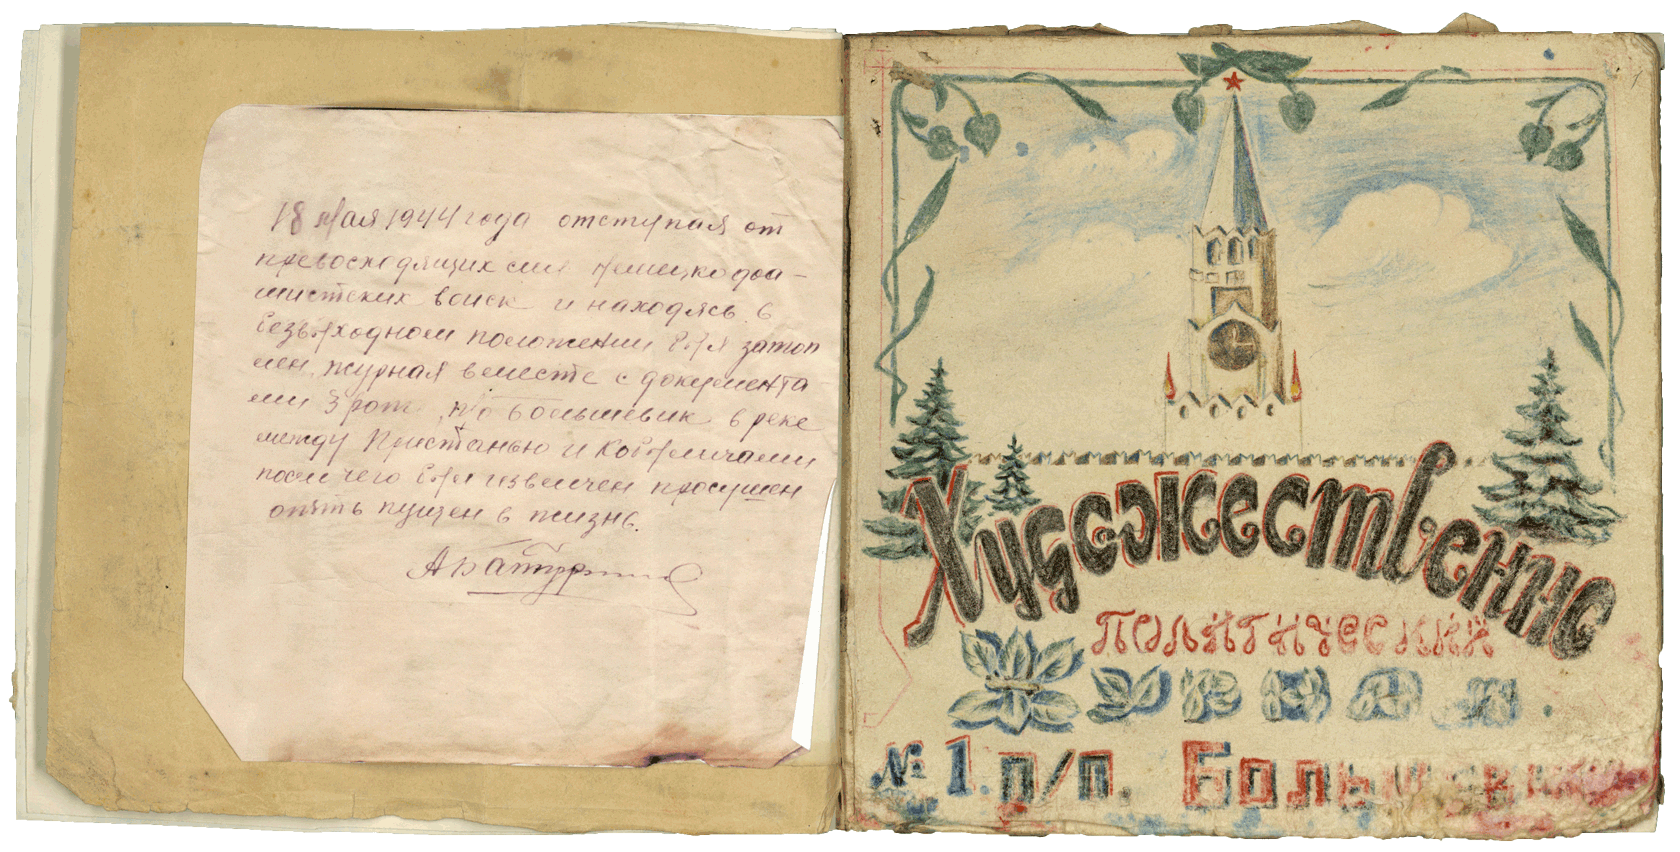 18 Мая 1944 года отступая от
превосходящих сил Немецкофа-
шистских войск и находясь в
безвыходном положении был затоп
лен журнал вместе с документа
ми 3 рот п/о большевик в реке
между Пристанью и
после чего был извлечен просушен
опять пущен в жизнь.
Художественно
политический
журнал.
№ 1. п/п. Большевик